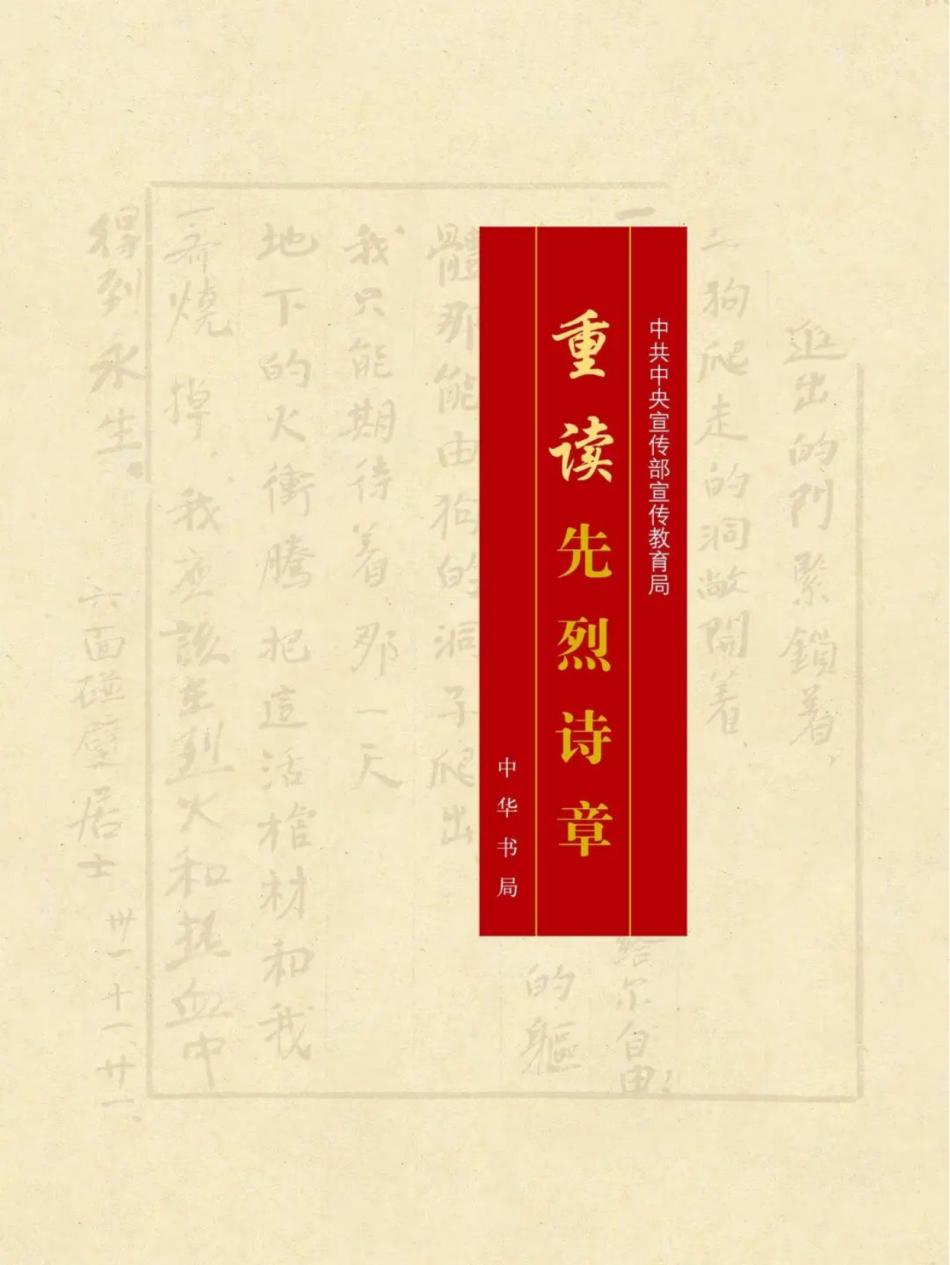 中共中央宣传部宣传教育局
重读先烈诗章
中华书局
進出的门緊鎖着,
狗爬走的洞敞開着,
一
給尔自由!
的軀
體那能由狗的洞子爬出
我只能期待着那一天
地下的火衝騰把這活棺材和我
一齊燒掉,我应該在烈火和热血中
得到永生。
六面碰壁居士 卅一、十一、廿一、